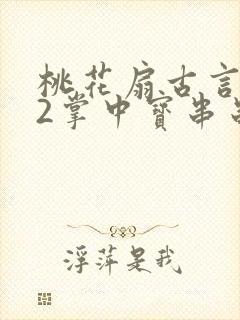 桃花扇古言
2掌中寳串
浮萍是我